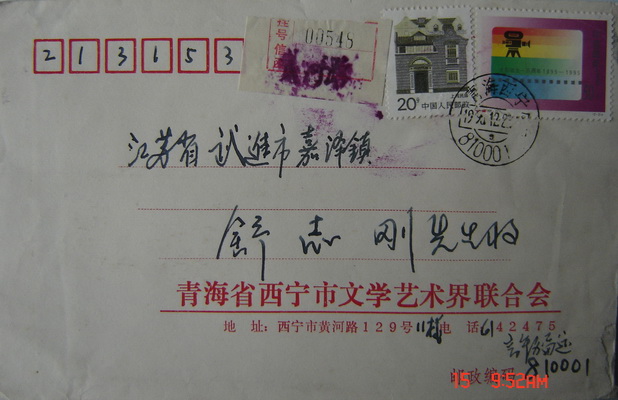 213653
00548
20分
中国人民邮政
810001
江苏省武進市嘉泽鎮
舒志刚先生收
青海省西宁市文学艺术界联合会
地 址：西宁市黄河路129号11楼电 话6142475
邮政编码 810001
15 9:52AM